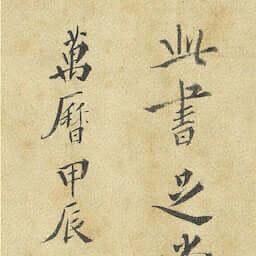 此書足
萬曆甲辰